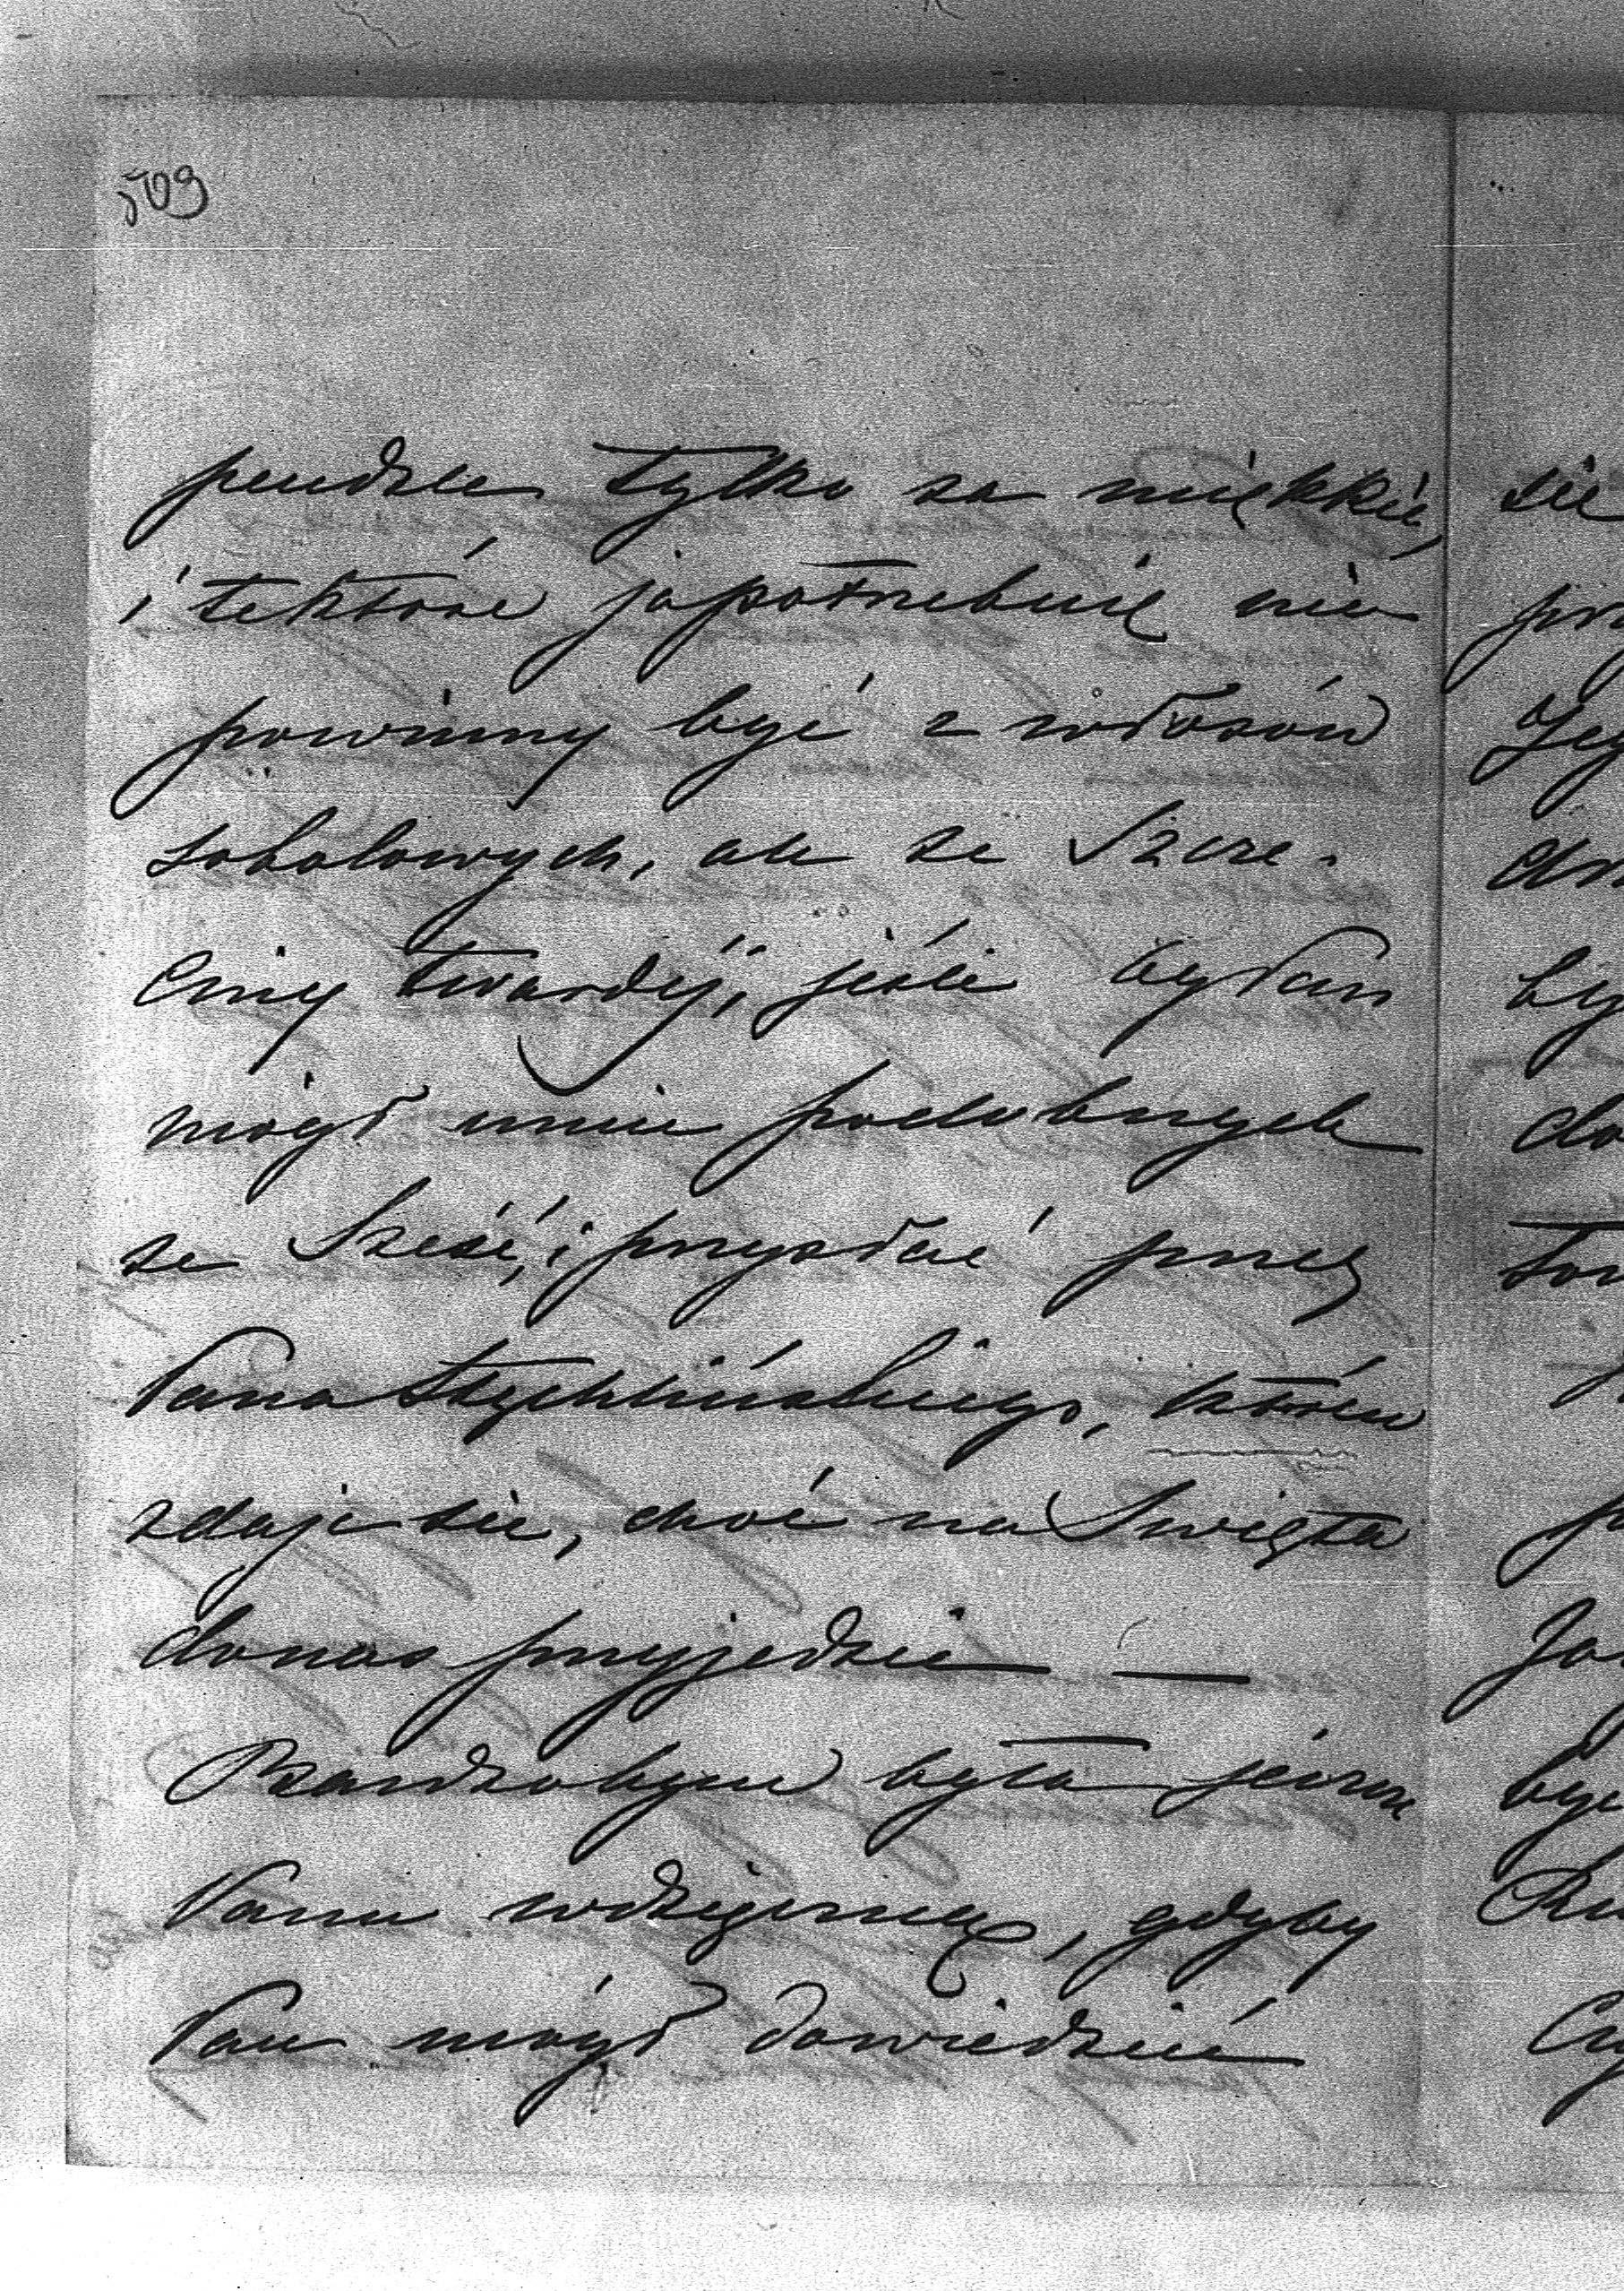 509
pendzle tylko za miękkie,
i te które ja potrzebuię nie
powinny być z włosów
sobolowych, ale ze Szcze-
ciny twardéj, jeśli by Pan
mógł mnie podobnych
ze Sześć, i przysłać przez
Pana Strychińskiego, który
zdaje sie, choć na Swięta
do nas przyjedzie —
Bardzobym była jeszcze
Panu wdzięczną, gdyby
Pan mógł dowiedzieć
sie